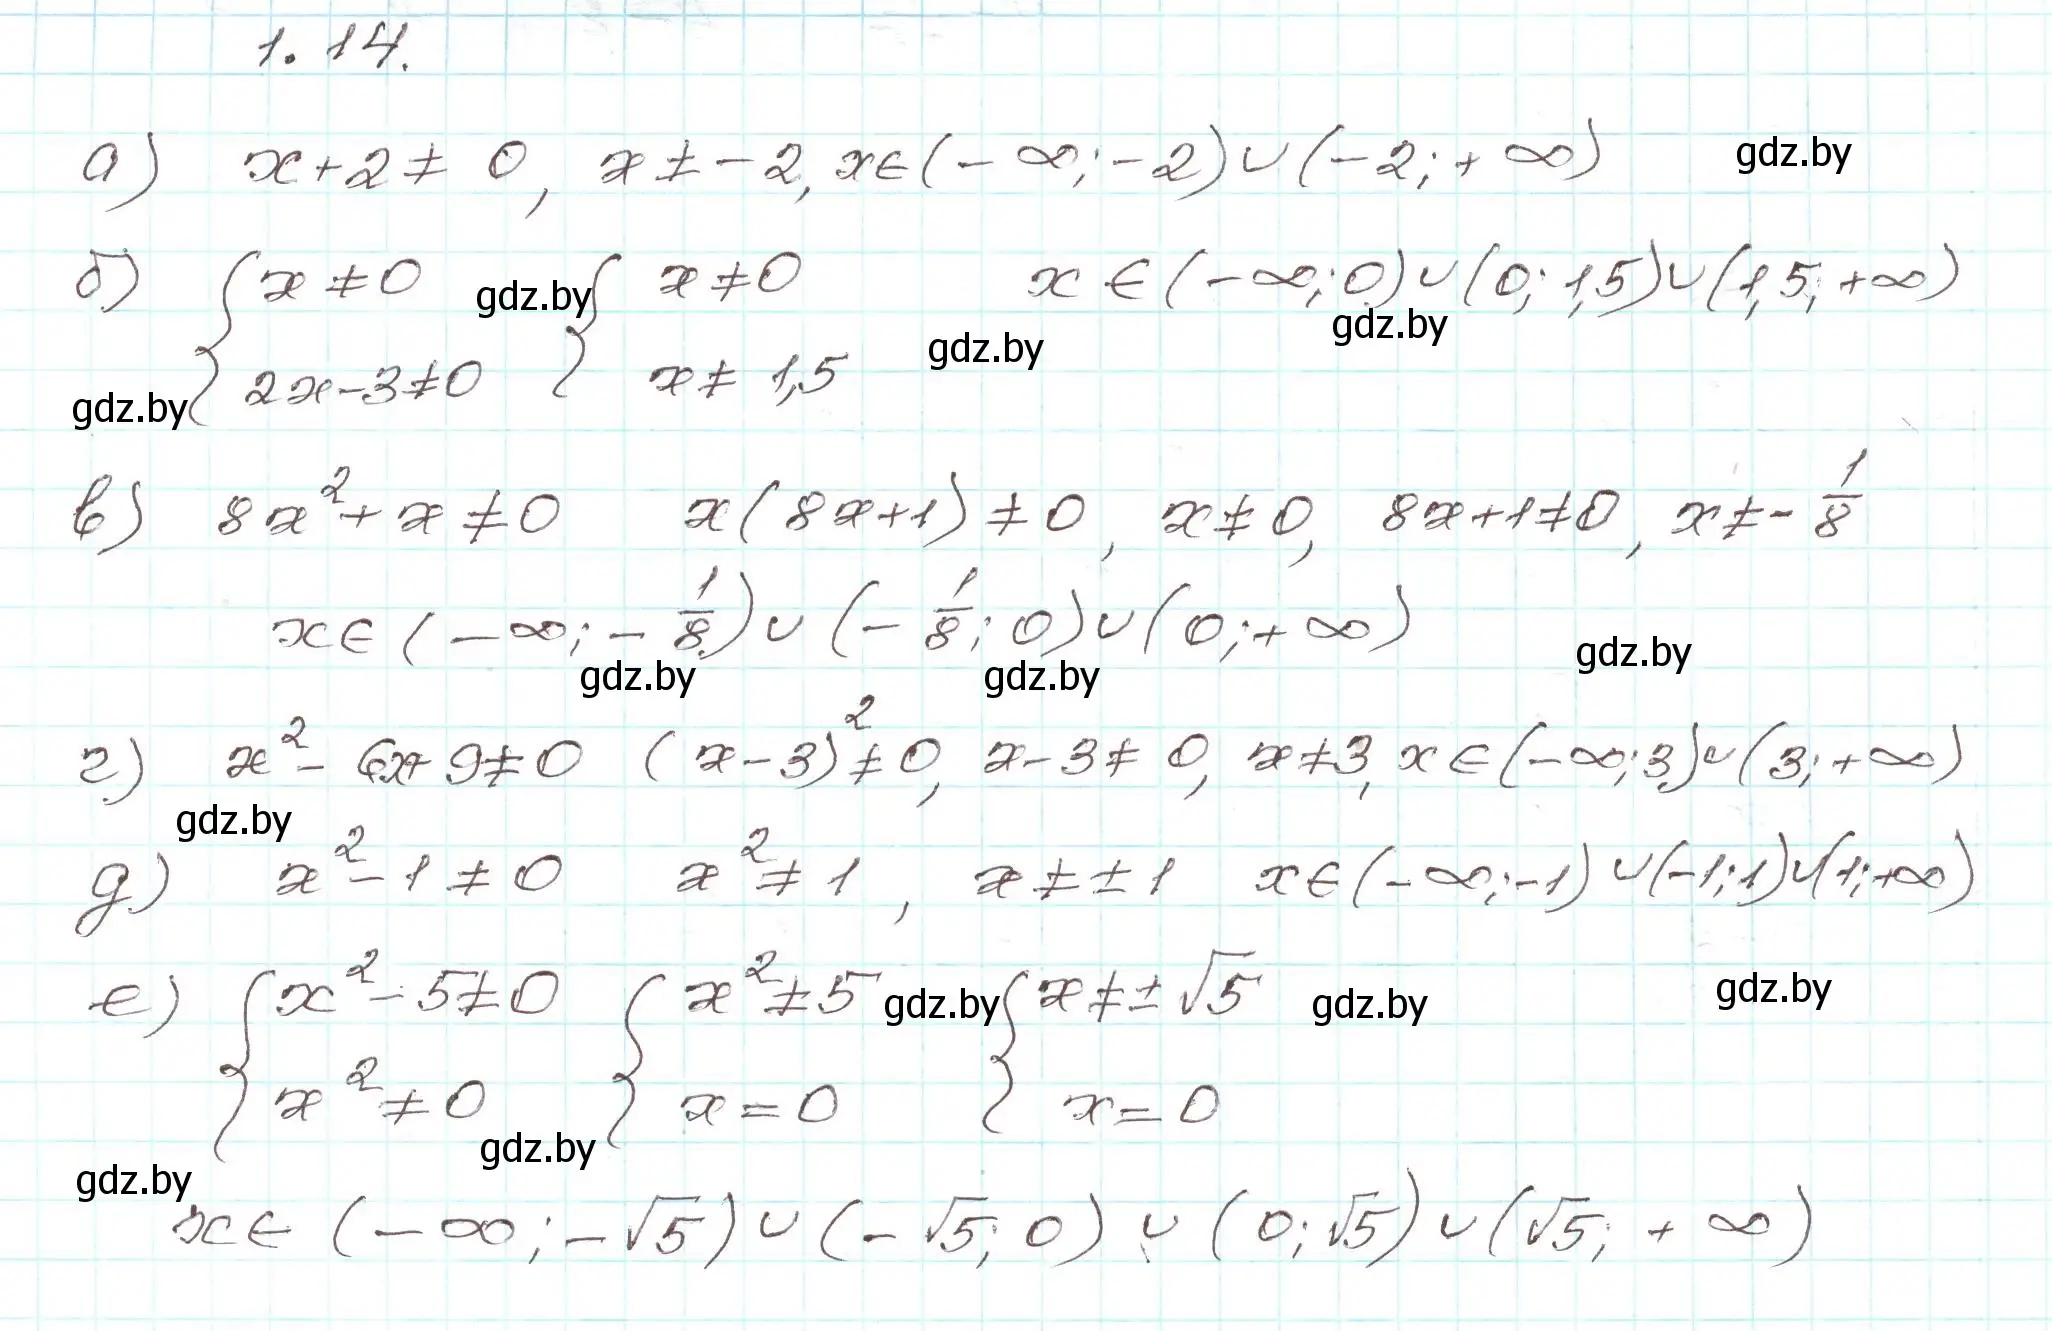 1.14.
а) x+2≠0, x≠-2, x∈(-∞;-2)∪(-2;+∞) gdz.by
б) { x≠0 gdz.by { x≠0 x∈(-∞;0)∪(0;1,5)∪(1,5;+∞)
gdz.by gdz.by
gdz.by 2x-3≠0 x≠1,5
в) 8x²+x≠0 x(8x+1)≠0, x≠0, 8x+1≠0, x≠-1/8
x∈(-∞;-1/8)∪(-1/8;0)∪(0;+∞)
gdz.by gdz.by gdz.by
г) x²-6x+9≠0 (x-3)²≠0, x-3≠0, x≠3, x∈(-∞;3)∪(3;+∞)
gdz.by
д) x²-1≠0 x²≠1, x≠±1 x∈(-∞;-1)∪(-1;1)∪(1;+∞)
е) { x²-5≠0 { x²≠5 gdz.by { x≠±√5 gdz.by gdz.by
x²≠0 x=0 x=0
gdz.by gdz.by
x∈(-∞;-√5)∪(-√5;0)∪(0;√5)∪(√5;+∞)